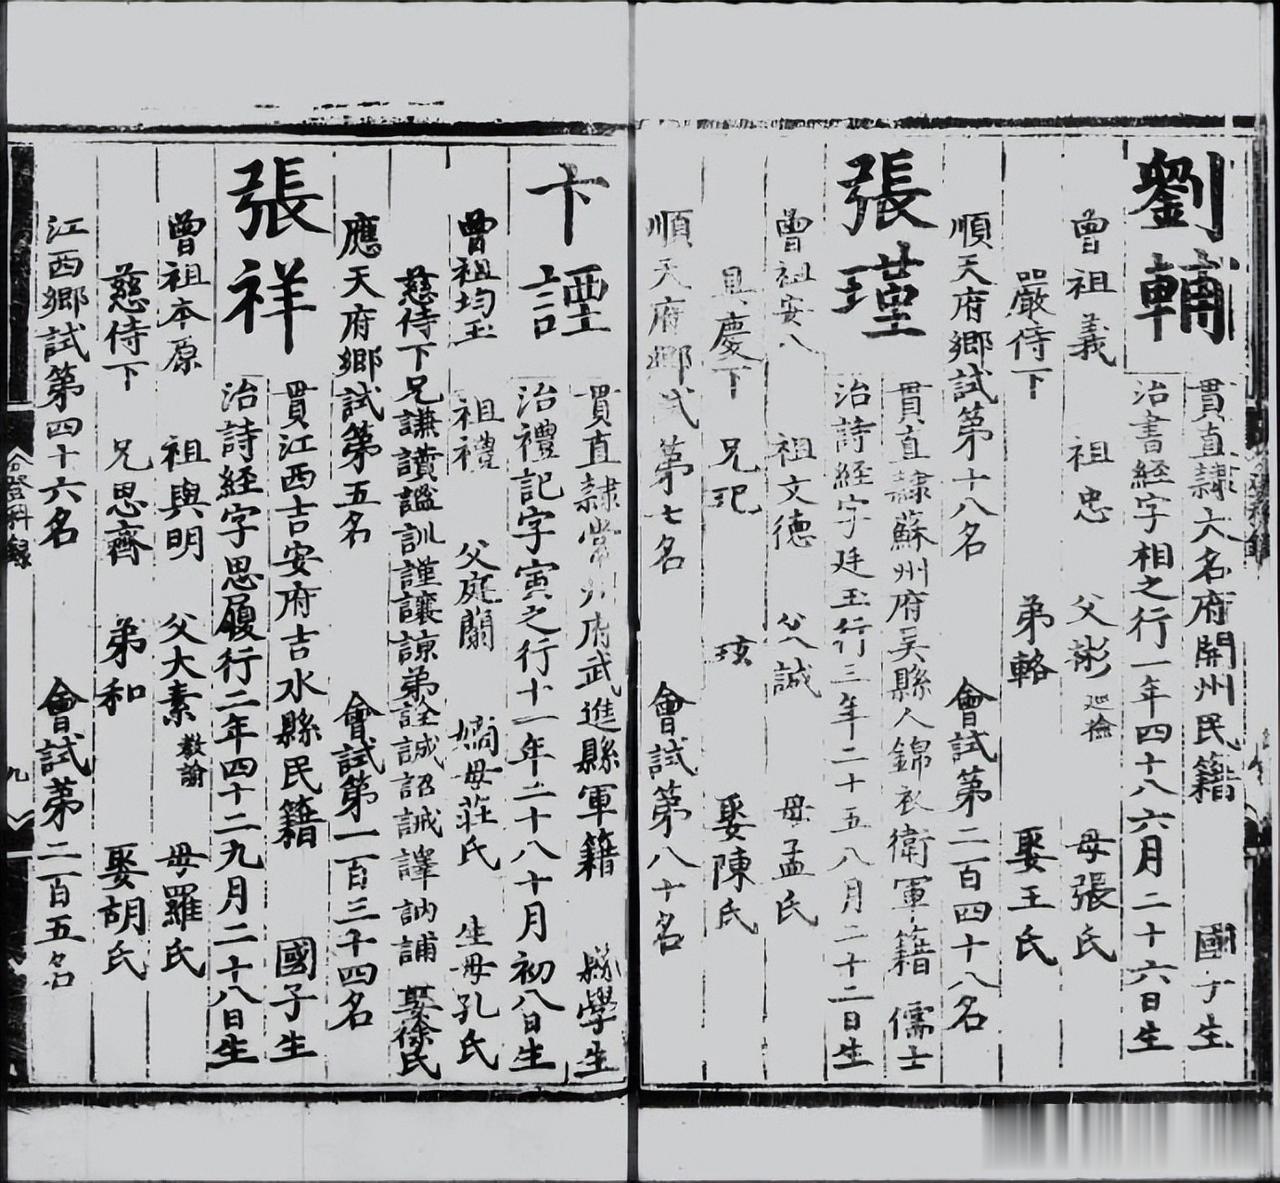 劉輔
貫直隸大名府開州民籍 國子生
治書經字相之行一年四十八六月二十六日生
曾祖義 祖忠 父彬巡檢 母張氏
嚴侍下 弟輅 娶王氏
順天府鄉試第十八名 會試第二百四十八名
張瑾
貫直隸蘇州府吳縣人錦衣衛軍籍 儒士
治詩經字廷玉行三年二十五八月二十二日生
曾祖安八 祖文德 父誠 母孟氏
具慶下 兄玘 玹 娶陳氏
順天府鄉試第七名 會試第八十名
卞諲
貫直隸常州府武進縣軍籍 縣學生
治禮記字寅之行十一年二十八十月初八日生
曾祖均玉 祖禮 父庭蘭 嫡母莊氏 生母孔氏
慈侍下兄謙讚謐訓謹讓諒弟詮誠詔誡譯訥誧 娶徐氏
應天府鄉試第五名 會試第一百三十四名
張祥
貫江西吉安府吉水縣民籍 國子生
治詩經字思履行二年四十二九月二十八日生
曾祖本原 祖與明 父大素教諭 母羅氏
慈侍下 兄思齊 弟和 娶胡氏
江西鄉試第四十六名 會試第二百五名
登科錄
九